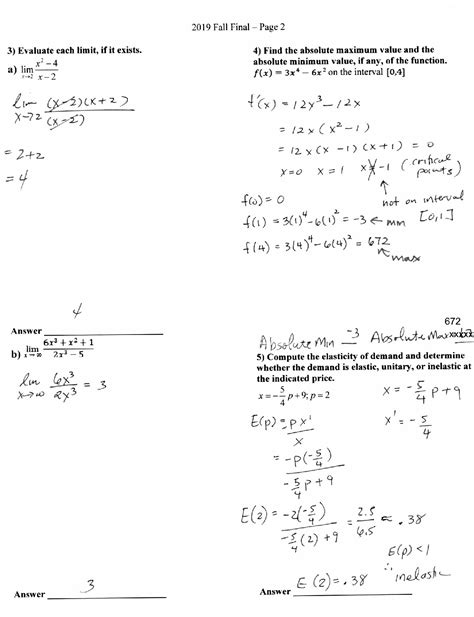 2019 Fall Final – Page 2
3) Evaluate each limit, if it exists.
a) lim x→2 x² – 4 / x – 2
lim x→2 (x-2)(x+2) / (x-2)
= 2+2
= 4
Answer 4
b) lim x→∞ 6x³ + x² + 1 / 2x³ – 5
lim x→∞ 6x³ / 2x³ = 3
Answer 3
4) Find the absolute maximum value and the
absolute minimum value, if any, of the function.
f(x) = 3x⁴ – 6x² on the interval [0,4]
f'(x) = 12x³ - 12x
= 12x (x² - 1)
= 12x (x - 1)(x + 1) = 0
x=0 x=1 x≠-1 (critical points)
not on interval
[0,1]
f(0) = 0
f(1) = 3(1)⁴ - 6(1)² = -3 ← min
f(4) = 3(4)⁴ - 6(4)² = 672
max
672
Absolute Min -3 Absolute Max
5) Compute the elasticity of demand and determine
whether the demand is elastic, unitary, or inelastic at
the indicated price.
x = – 5/4 p + 9; p = 2
x = -5/4 p + 9
x' = -5/4
E(p) = -p x' / x
= -p(-5/4) / -5/4 p + 9
E(2) = -2(-5/4) / -5/4 (2) + 9 = 2.5 / 6.5 ≈ .38
E(p) < 1
∴ inelastic
Answer E(2) = .38